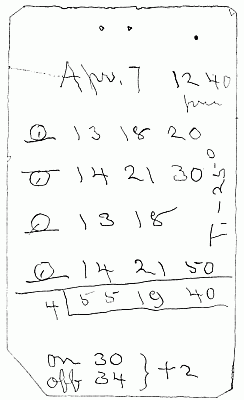 Apr. 7 12 40
pm
13 18 20
14 21 30
13 18
14 21 50
4 55 19 40
on 30
off 34 } +2